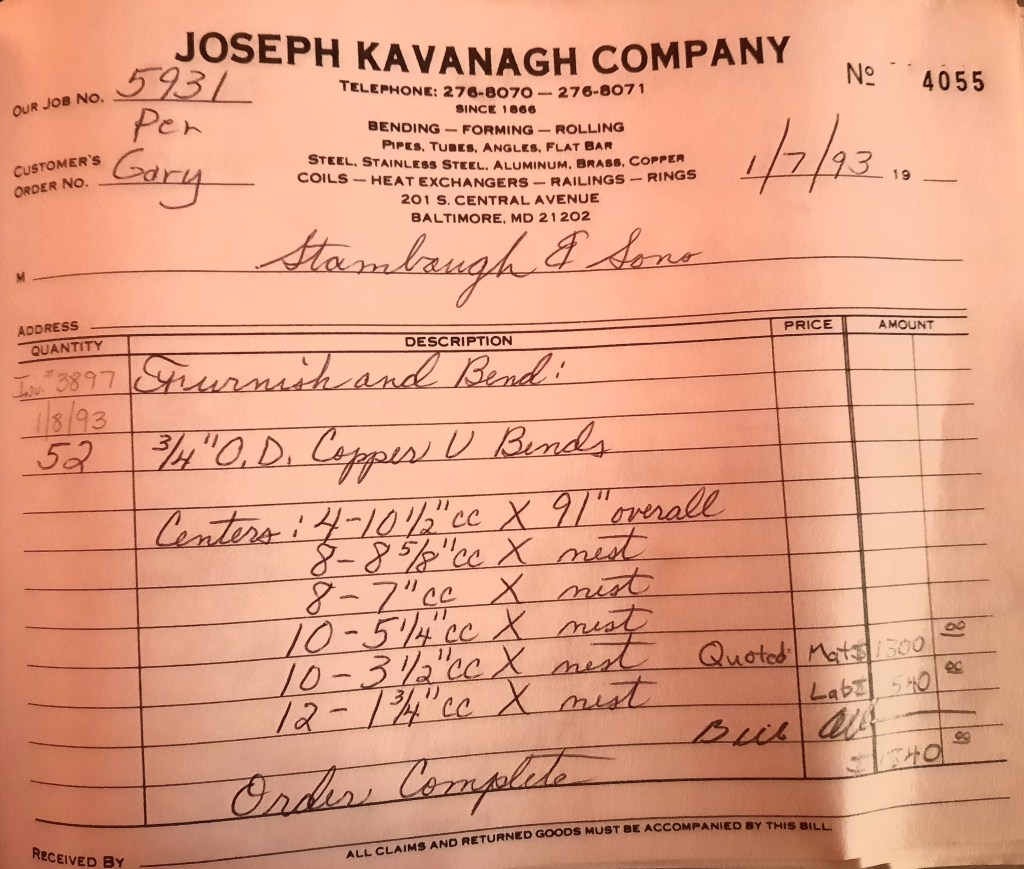 JOSEPH KAVANAGH COMPANY
Nº 4055
OUR JOB NO. 5931
TELEPHONE: 276-8070 — 276-8071
SINCE 1866
Per
BENDING — FORMING — ROLLING
PIPES, TUBES, ANGLES, FLAT BAR
CUSTOMER'S ORDER NO. Gary
STEEL, STAINLESS STEEL, ALUMINUM, BRASS, COPPER
1/7/93 19
COILS — HEAT EXCHANGERS — RAILINGS — RINGS
201 S. CENTRAL AVENUE
BALTIMORE, MD 21202
M Stambaugh & Sons
ADDRESS
QUANTITY DESCRIPTION PRICE AMOUNT
Inv. #3897 Furnish and Bend:
1/8/93
52 3/4" O.D. Copper U Bends
Centers: 4-10 1/2" cc X 91" overall
8-8 5/8" cc X nest
8-7" cc X nest
10-5 1/4" cc X nest
10-3 1/2" cc X nest Quoted Mat $ 1300 00
12-1 3/4" cc X nest Lab $ 540 00
Bill
40 00
Order Complete
RECEIVED BY
ALL CLAIMS AND RETURNED GOODS MUST BE ACCOMPANIED BY THIS BILL.